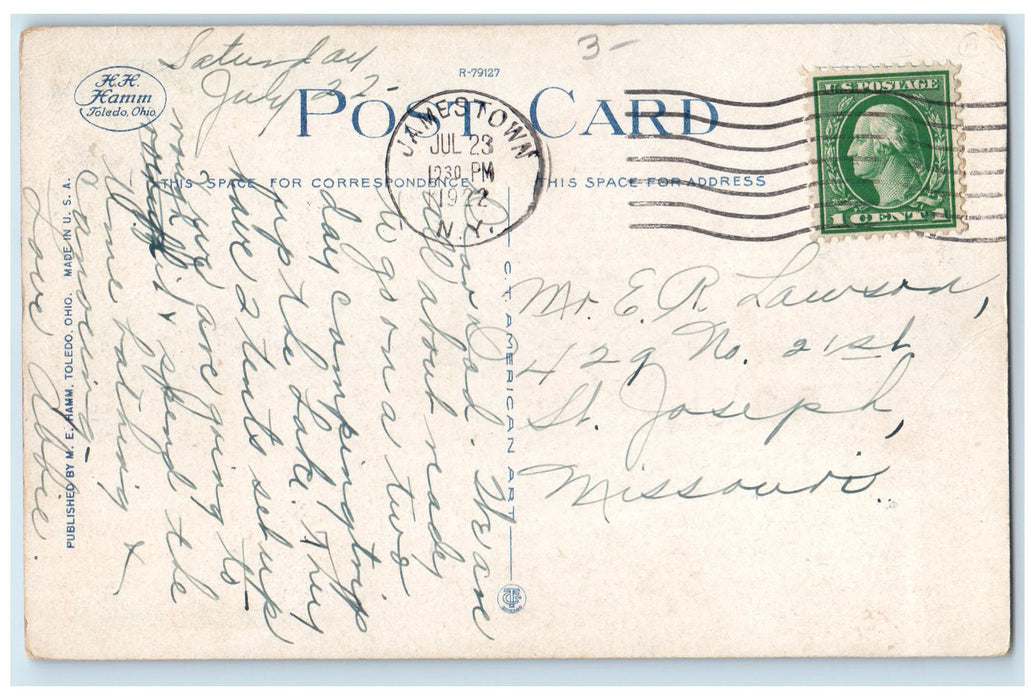 Saturday
July 22-
3-
R-79127
H.H.
Hamm
Toledo, Ohio
POST CARD
JAMESTOWN
JUL 23
12 30 PM
1922
N.Y.
U.S. POSTAGE
1 CENT 1
THIS SPACE FOR CORRESPONDENCE
THIS SPACE FOR ADDRESS
Dear Dad. We are
all about ready
to go on a two
day camping trip
up the Lake. They
have 2 tents set up
we are going to
spend the
time bathing &
Canoeing-
Love Abbie.
Mr. E. R. Lawson,
429 No. 21st
St. Joseph,
Missouri.
C.T. AMERICAN ART
PUBLISHED BY M. E. HAMM, TOLEDO, OHIO. MADE IN U. S. A.